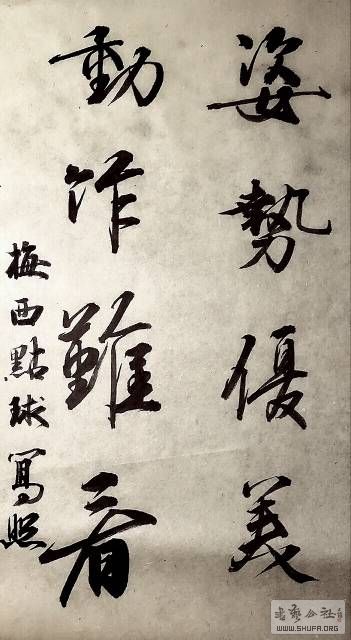 姿勢優美
動作難看
梅西點球寫照
書藝公社
WWW.SHUFA.ORG